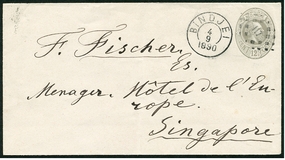 BINDJEI
4
9
1890
F. Fischer,
Es.
Menager, Hôtel de l'Eu-
rope.
Singapore